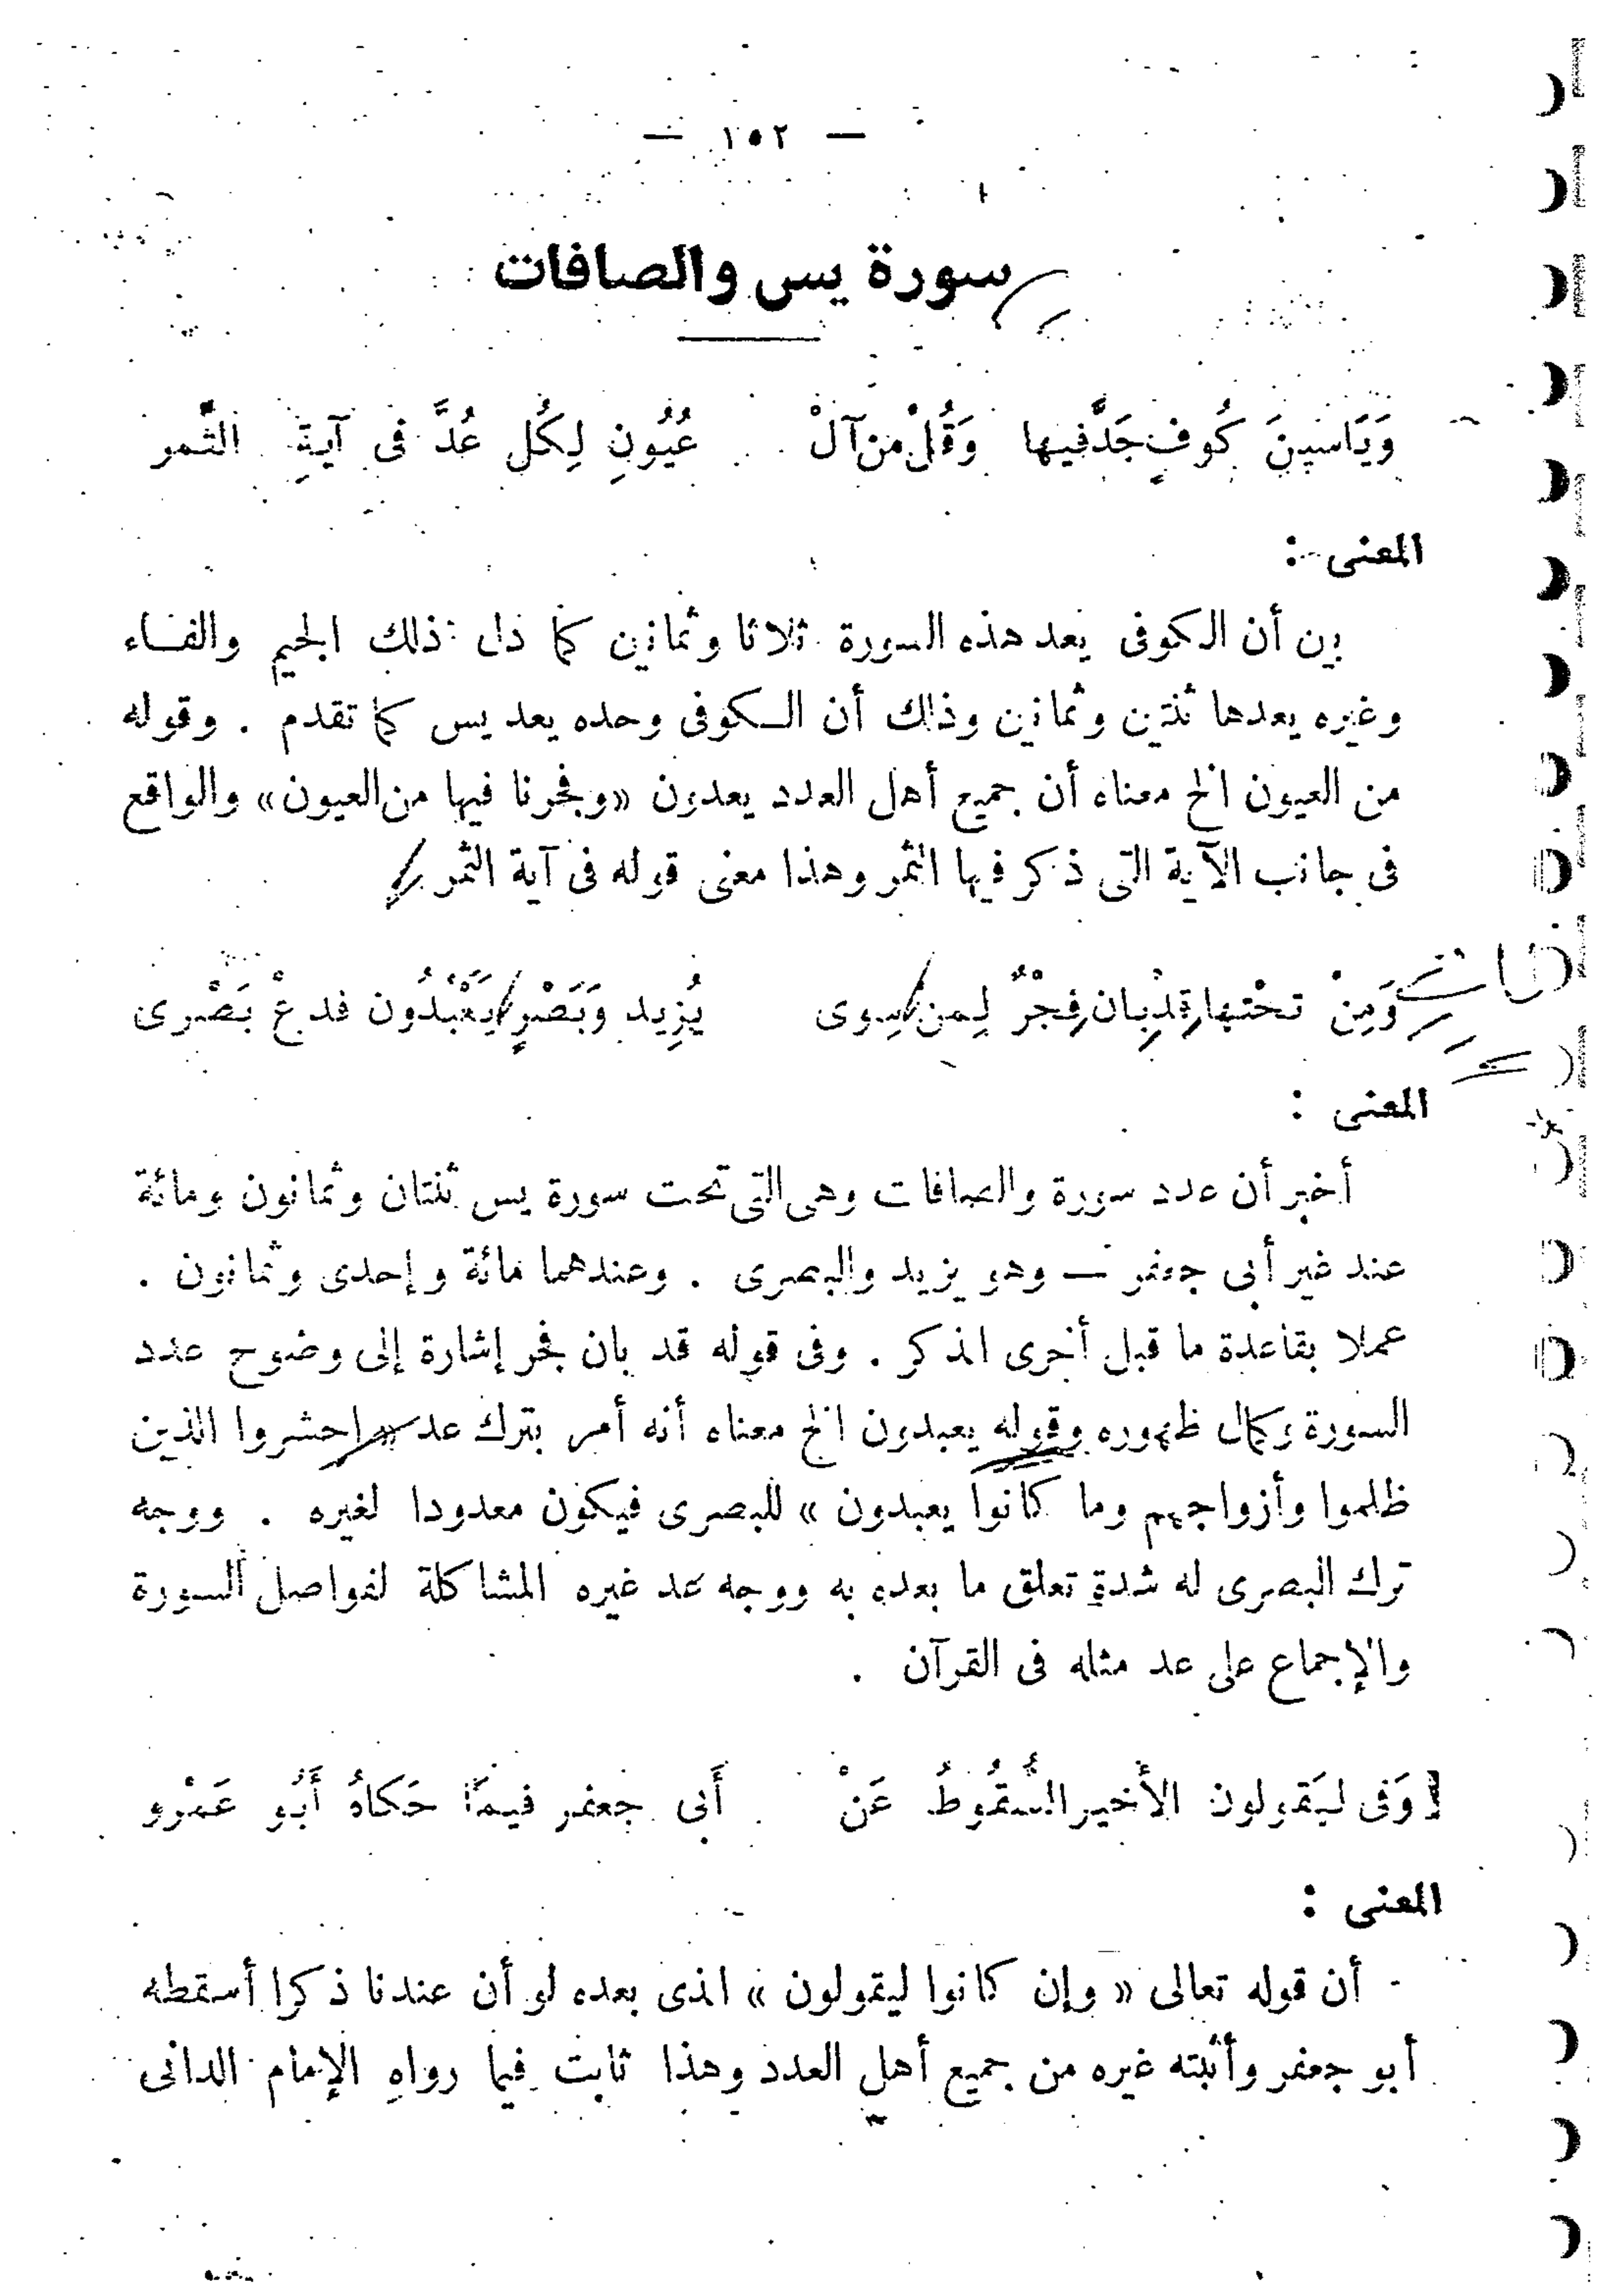 — ١٥٢ —
سورة يس والصافات
وَيَاسينَ كُوفٍ جَدَّ فيها وَقُلْ من آلْ عُيُونِ لِكُل عُدَّ فى آيةِ الثَّمر
المعنى :
بين أن الكوفى يعد هذه السورة ثلاثا وثمانين كما دل ذلك الجيم والفاء
وغيره يعدها ثنتين وثمانين وذلك أن الكوفى وحده يعد يس كما تقدم . وقوله
من العيون الخ معناه أن جميع أهل العدد يعدون «وفجرنا فيها من العيون» والواقع
فى جانب الآية التى ذكر فيها الثمر وهذا معنى قوله فى آية الثمر
وَمِنْ تحْتها قدْ بان فجْرٌ لِمن سِوى يُزِيد وَبَصْرٍ يَعْبُدُون فدعْ بَصْرى
المعنى :
أخبر أن عدد سورة والصافات وهى التى تحت سورة يس ثنتان وثمانون ومائة
عند غير أبى جعفر — وهو يزيد والبصرى . وعندهما مائة وإحدى وثمانون .
عملا بقاعدة ما قبل أخرى الذكر . وفى قوله قد بان فجر إشارة إلى وضوح عدد
السورة وكمال ظهوره وقوله يعبدون الخ معناه أنه أمر بترك عد « احشروا الذين
ظلموا وأزواجهم وما كانوا يعبدون » للبصرى فيكون معدودا لغيره . ووجه
ترك البصرى له شدة تعلق ما بعده به ووجه عد غيره المشاكلة لفواصل السورة
والإجماع على عد مثله فى القرآن .
وَفى ليَقولون الأخير السُّقُوطُ عَنْ أَبى جعفر فيمَا حَكاهُ أَبُو عَمْرو
المعنى :
أن قوله تعالى « وإن كانوا ليقولون » الذى بعده لو أن عندنا ذكرا أسقطه
أبو جعفر وأثبته غيره من جميع أهل العدد وهذا ثابت فيما رواه الإمام الدانى